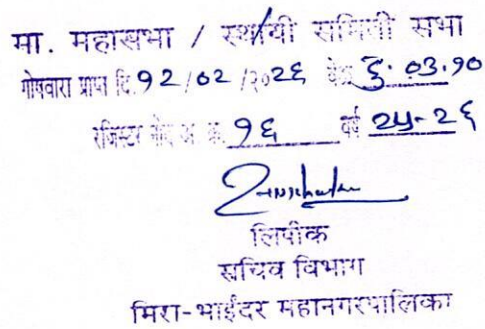 मा. महासभा / स्थायी समिती सभा
गोषवारा प्राप्त दि. १२/०२/२०२६ वेळ ६.०३.१०
रजिस्टर नोंद अ क्र. १६ वर्ष २५-२६
लिपीक
सचिव विभाग
मिरा-भाईंदर महानगरपालिका